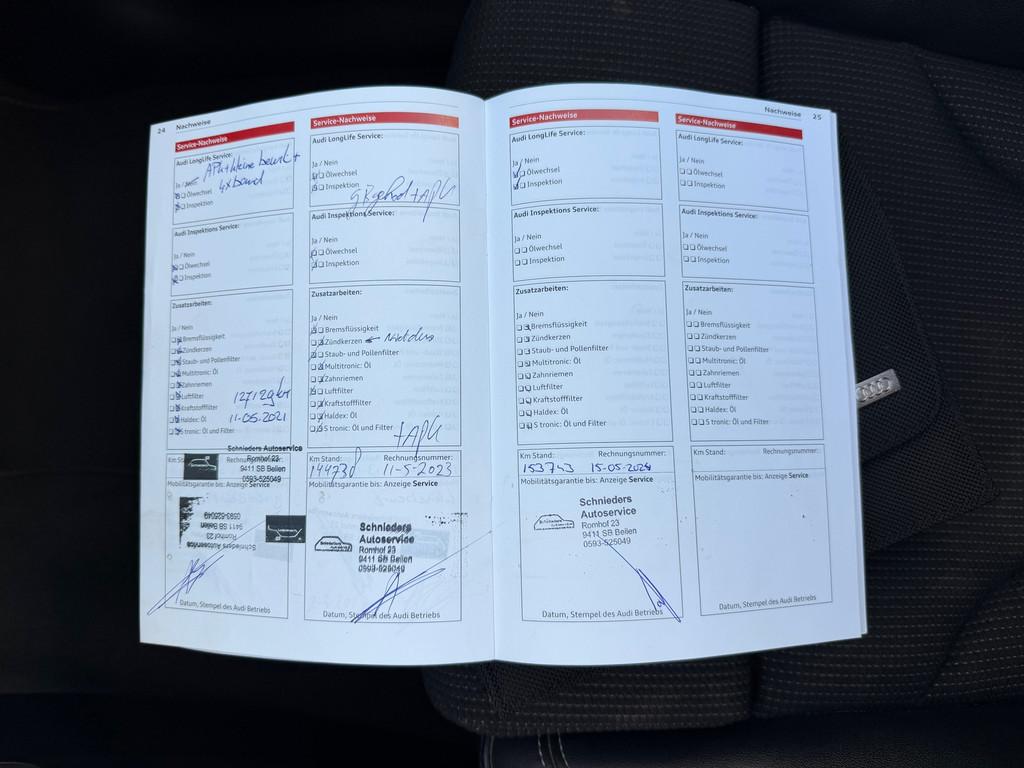 24 Nachweise
Service-Nachweise
Audi LongLife Service:
Ja /
Ölwechsel
4x band
Inspektion
Audi Inspektions Service:
Ja / Nein
Ölwechsel
Inspektion
Zusatzarbeiten:
Ja / Nein
Bremsflüssigkeit
Zündkerzen
Staub- und Pollenfilter
Multitronic: Öl
Zahnriemen
Luftfilter
Kraftstofffilter
Haldex: Öl
11-05-2021
S tronic: Öl und Filter
Schnieders Autoservice
Romhof 23
9411 SB Beilen
0593-525049
Mobilitätsgarantie bis: Anzeige Service
0593-525049
9411 SB Beilen
Romhof 23
Schnieders Autoservice
Datum, Stempel des Audi Betriebs
Service-Nachweise
Audi LongLife Service:
Ja / Nein
Ölwechsel
Inspektion
+APK
Audi Inspektions Service:
Ja / Nein
Ölwechsel
Inspektion
Zusatzarbeiten:
Ja / Nein
Bremsflüssigkeit
Zündkerzen
Staub- und Pollenfilter
Multitronic: Öl
Zahnriemen
Luftfilter
Kraftstofffilter
Haldex: Öl
S tronic: Öl und Filter
+APK
Km Stand: Rechnungsnummer:
144730 11-5-2023
Mobilitätsgarantie bis: Anzeige Service
Schnieders
Autoservice
Romhof 23
9411 SB Beilen
0593-525049
Datum, Stempel des Audi Betriebs
Nachweise 25
Service-Nachweise
Audi LongLife Service:
Ja / Nein
Ölwechsel
Inspektion
Audi Inspektions Service:
Ja / Nein
Ölwechsel
Inspektion
Zusatzarbeiten:
Ja / Nein
Bremsflüssigkeit
Zündkerzen
Staub- und Pollenfilter
Multitronic: Öl
Zahnriemen
Luftfilter
Kraftstofffilter
Haldex: Öl
S tronic: Öl und Filter
Km Stand: Rechnungsnummer:
153743 15-05-2024
Mobilitätsgarantie bis: Anzeige Service
Schnieders
Autoservice
Romhof 23
9411 SB Beilen
0593-525049
Datum, Stempel des Audi Betriebs
Service-Nachweise
Audi LongLife Service:
Ja / Nein
Ölwechsel
Inspektion
Audi Inspektions Service:
Ja / Nein
Ölwechsel
Inspektion
Zusatzarbeiten:
Ja / Nein
Bremsflüssigkeit
Zündkerzen
Staub- und Pollenfilter
Multitronic: Öl
Zahnriemen
Luftfilter
Kraftstofffilter
Haldex: Öl
S tronic: Öl und Filter
Km Stand: Rechnungsnummer:
Mobilitätsgarantie bis: Anzeige Service
Datum, Stempel des Audi Betriebs